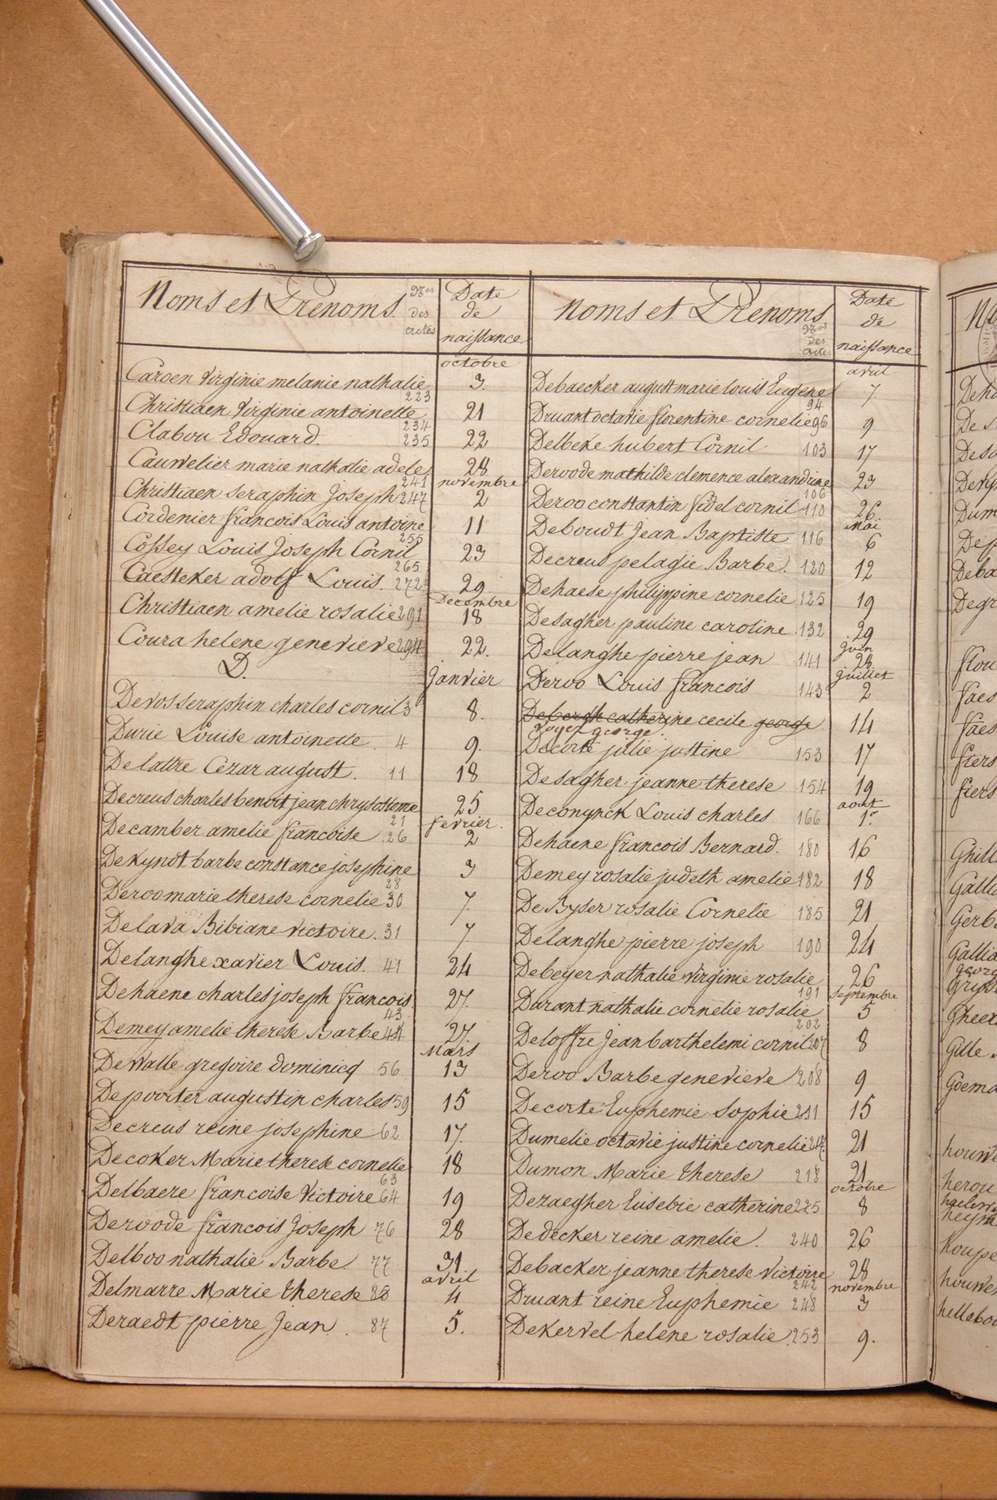 Noms et Prenoms
Nos des actes
Date de naissance
octobre
Caroen Virginie melanie nathalie 223 3
Christiaen Virginie antoinette 234 21
Clabou Edouard 235 22
Cauwelier marie nathalie adele 241 28
novembre
Christiaen seraphin Joseph 247 2
Cordenier francois Louis antoine 255 11
Cossey Louis Joseph Cornil 265 23
Caesteker adolf Louis 272 29
Decembre
Christiaen amelie rosalie 291 18
Coura helene genevieve 294 22
D.
Janvier
Devos seraphin charles cornil 3 8
Durie Louise antoinette 4 9
Delattre Cezar august 11 18
Decreus charles benoit jean chrysostome 21 25
fevrier
Decamber amelie francoise 26 2
Dekyndt barbe constance josephine 28 3
Deroo marie therese cornelie 30 7
Delava Bibiane victoire 31 7
Delanghe xavier Louis 41 24
Dehaene charles joseph francois 43 27
Demey amelie therese Barbe 44 27
Mars
Dewalle gregoire dominicq 56 13
Depoorter augustin charles 59 15
Decreus reine josephine 62 17
Decoker Marie therese cornelie 63 18
Delbaere francoise Victoire 64 19
Deroode francois Joseph 76 28
Delboo nathalie Barbe 77 31
avril
Delmarre Marie therese 4
Deraedt pierre Jean 87 5.
Noms et Prenoms
Nos des actes
Date de naissance
avril
Debaecker august marie louis Eugene 94 7
Druant octavie florentine cornelie 96 9
Delbeke hubert Cornil 103 17
Deroode mathilde clemence alexandrine 106 23
Deroo constantin fidel cornil 110 26
Mai
Deboudt Jean Baptiste 116 6
Decreus pelagie Barbe 120 12
Dehaese philippine cornelie 125 19
Desagher pauline caroline 132 29
juin
Delanghe pierre jean 141 28
juillet
Deroo Louis francois 143 2
Debergh catherine cecile george 14
voyez george
Decorte julie justine 153 17
Desagher jeanne therese 154 19
aout
Deconynck Louis charles 166 1r
Dehaene francois Bernard 180 16
Demey rosalie judeth amelie 182 18
De Byser rosalie Cornelie 185 21
Delanghe pierre joseph 190 24
Debeyer nathalie virginie rosalie 191 26
septembre
Durant nathalie cornelie rosalie 202 5
Deloffre Jean barthelemi cornil 207 8
Deroo Barbe genevieve 208 9
Decorte Euphemie Sophie 211 15
Dumelie octavie justine cornelie 21
Dumon Marie therese 218 21
octobre
Dezaegher Eusebie catherine 225 8
Dedecker reine amelie 240 26
Debacker jeanne therese victoire 242 28
novembre
Druant reine Euphemie 248 3
Dekervel helene rosalie 253 9.